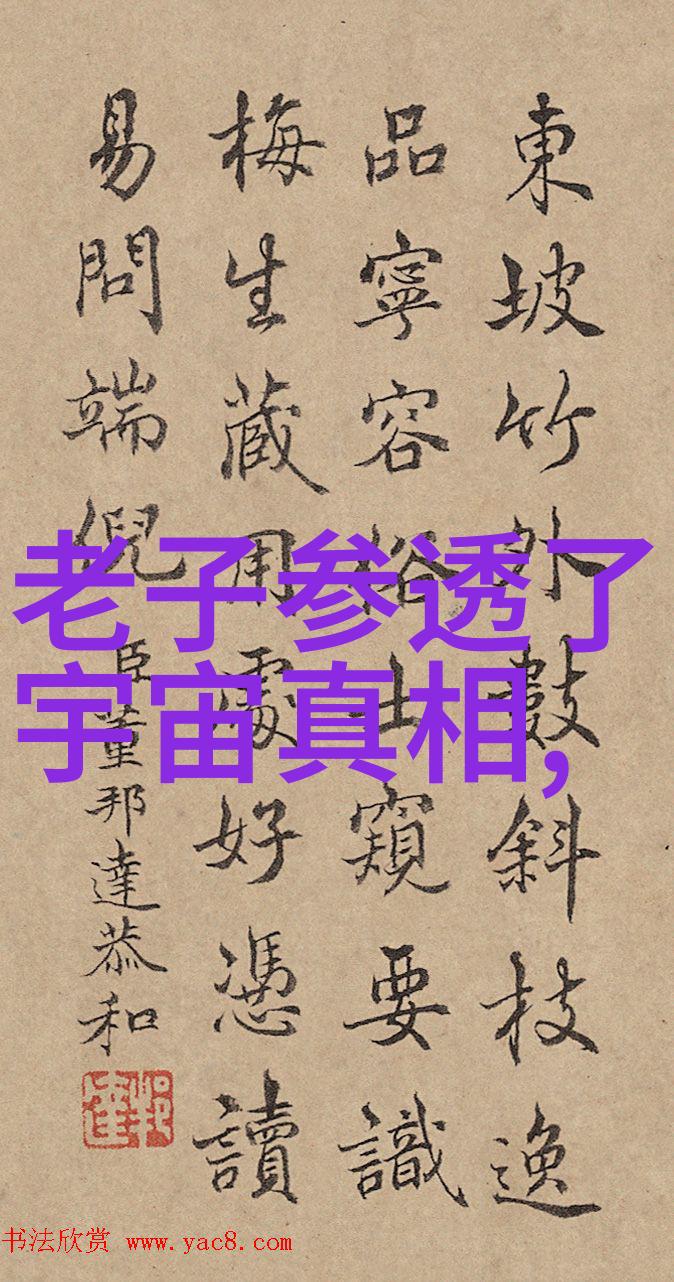 東坡竹外斜枝逸
品寧容俗士窺要識
梅生藏用處好憑讀
易問端倪 臣董邦達恭和
老子参透了
宇宙真相,
书法欣赏 www.yac8.com